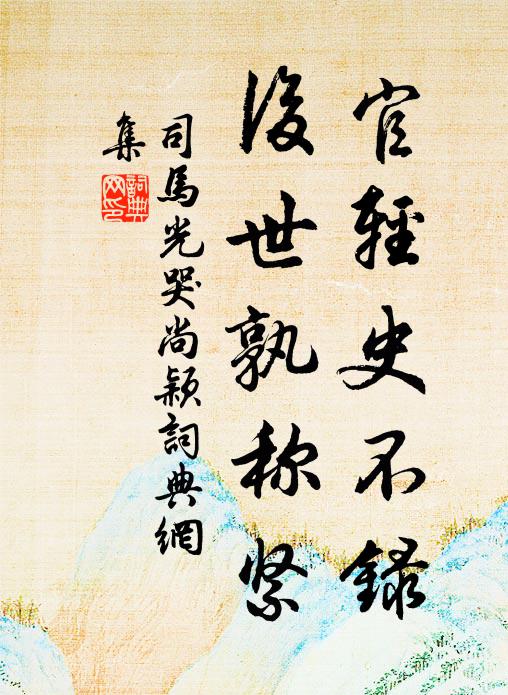 官輕史不録
後世孰称緊
司馬光哭尚颖詞典網
集
詞典網印